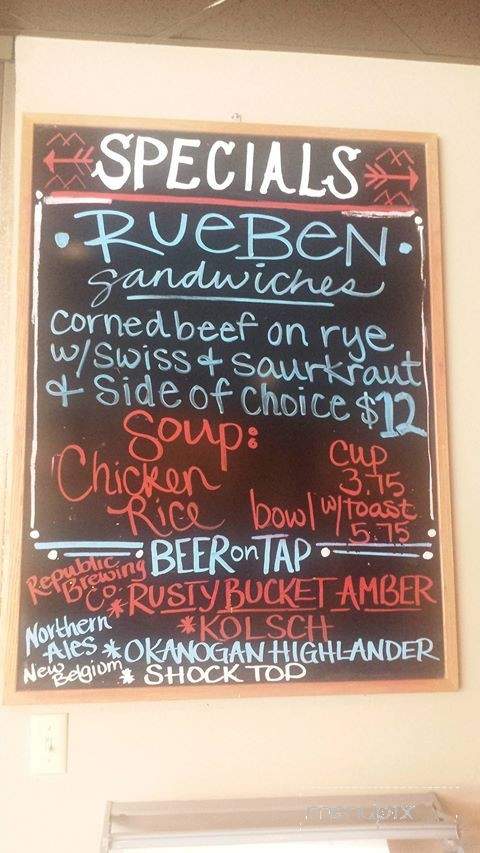 SPECIALS
RUEBEN
sandwiches
corned beef on rye
w/swiss + saurkraut
+ side of choice $12
Soup:
Chicken
Rice
cup
3.75
bowl w/toast
5.75
BEER on TAP
Republic
Brewing
Co. *RUSTY BUCKET AMBER
*KOLSCH
Northern
Ales *OKANOGAN HIGHLANDER
New
Belgium *SHOCK TOP
menupix